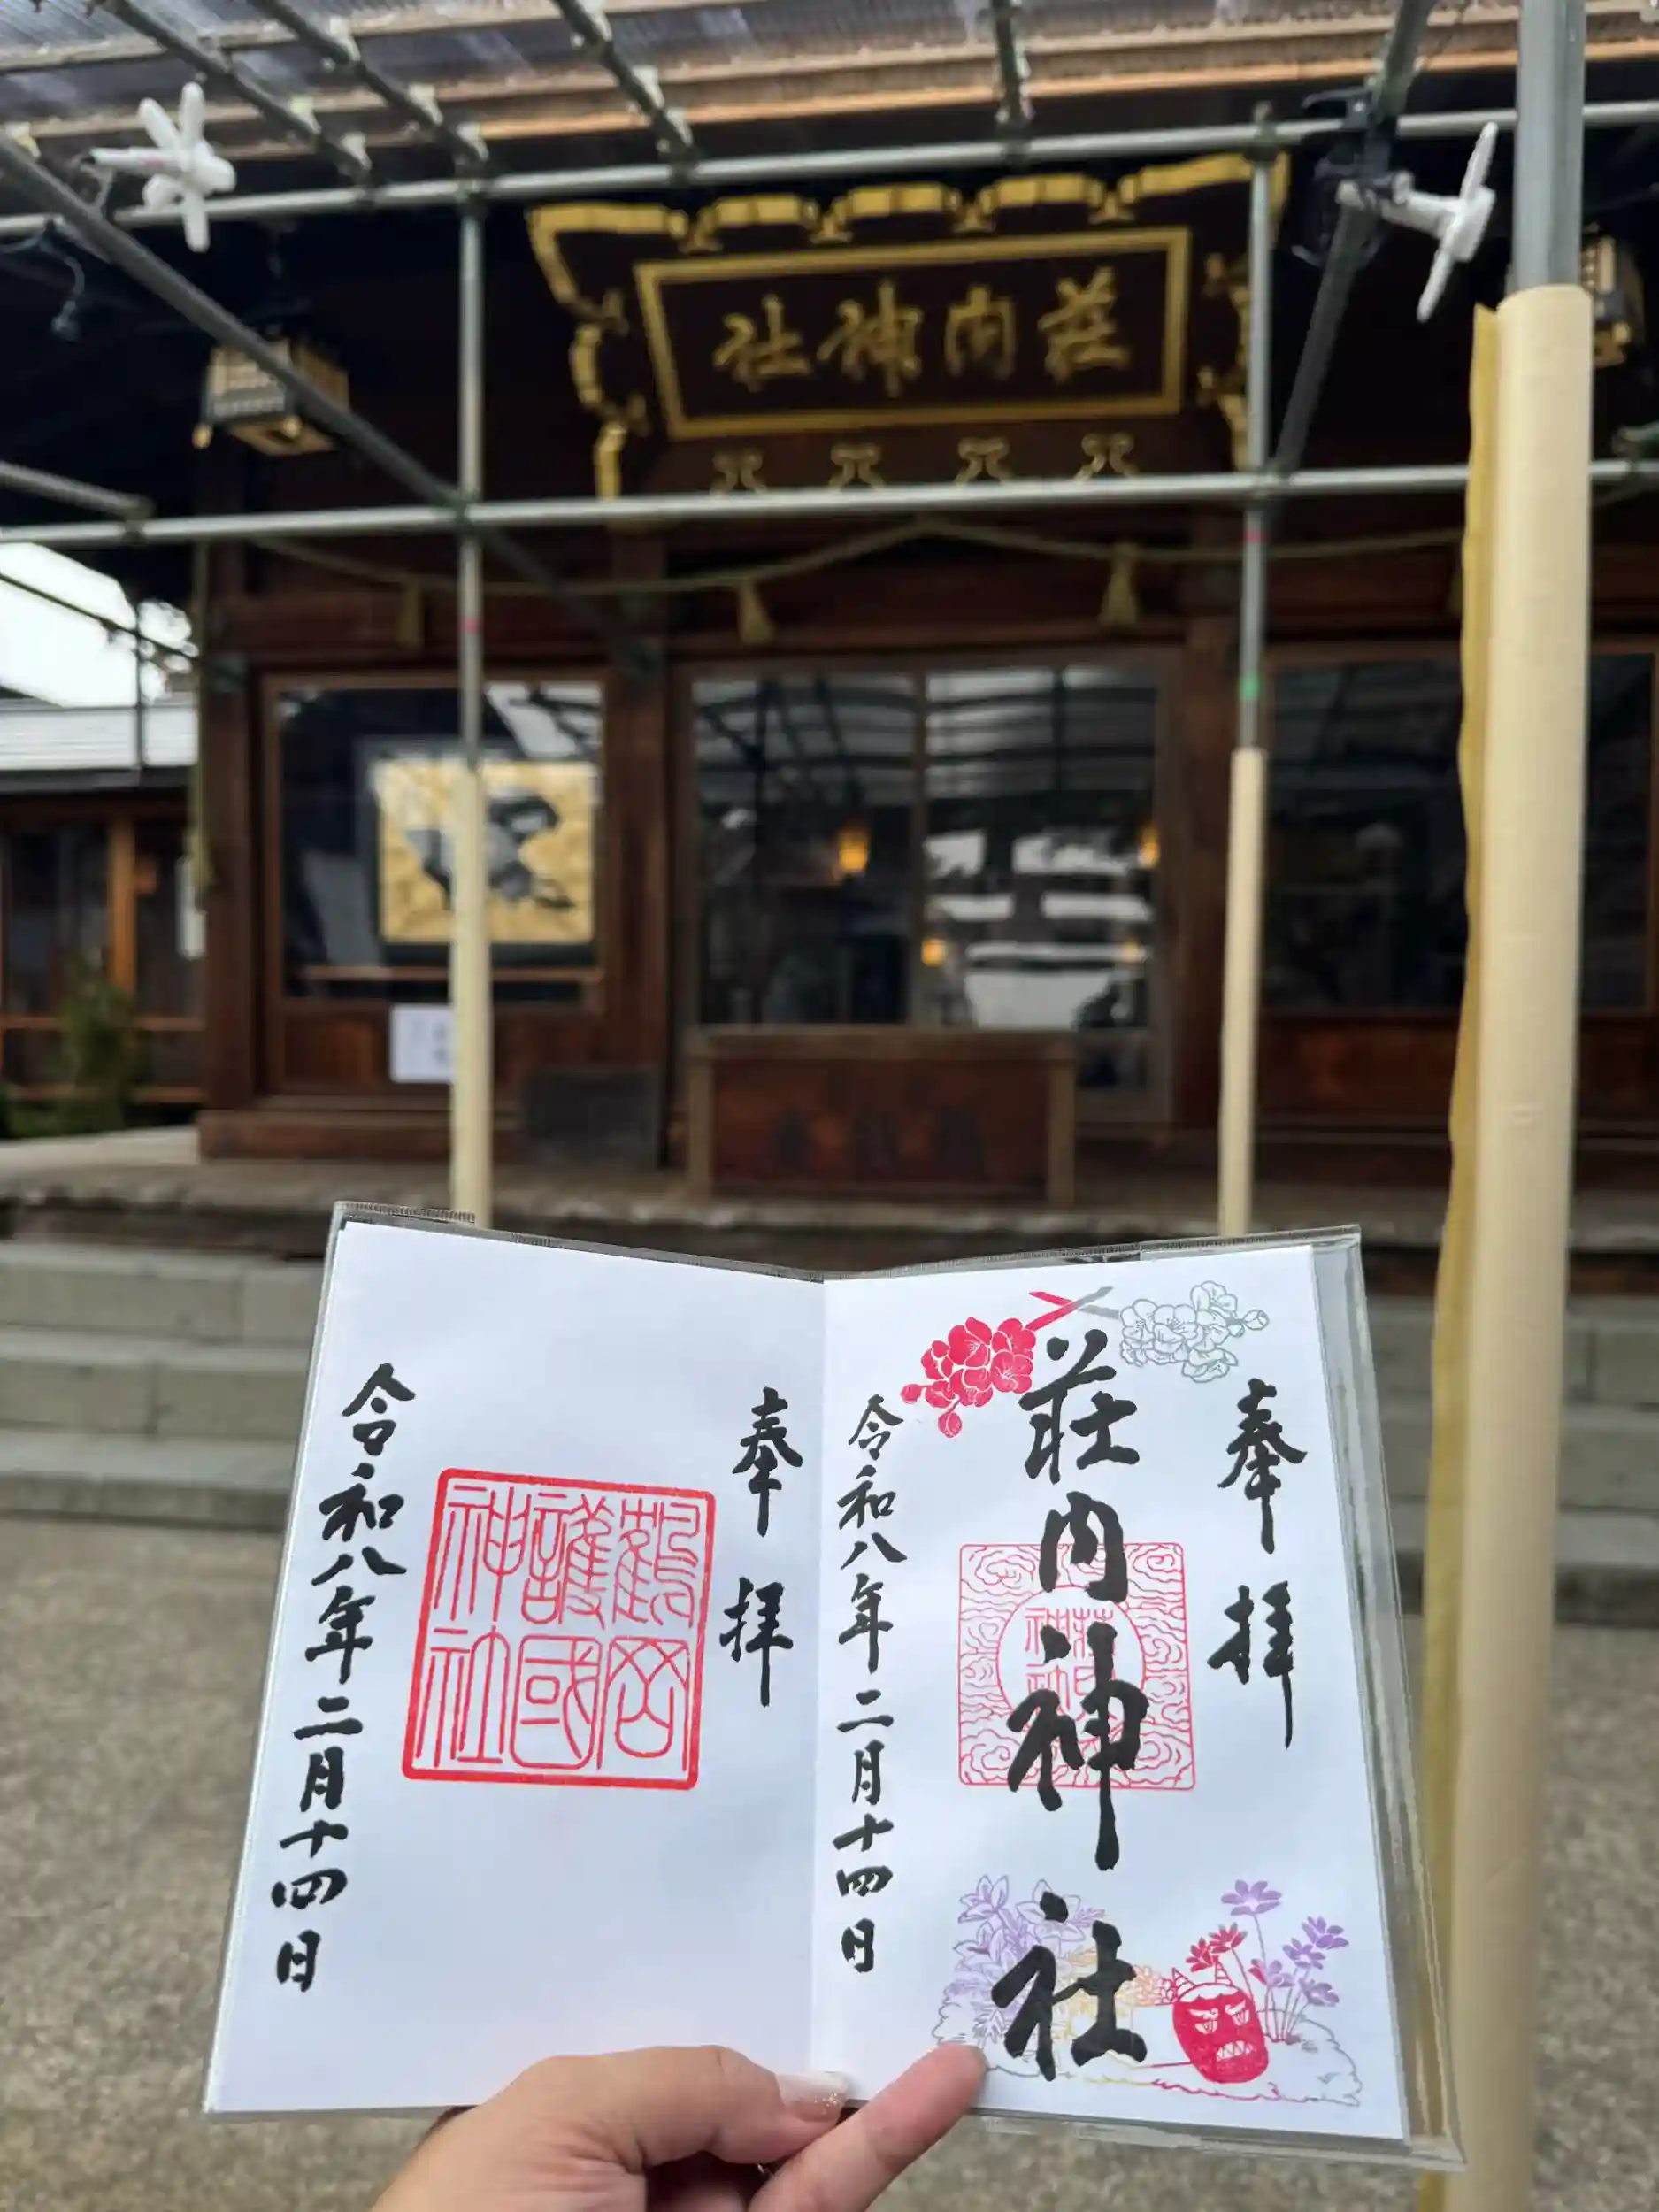 荘内神社
奉拝
荘内神社
令和八年二月十四日
奉拝
鶴岡
護國
神社
令和八年二月十四日